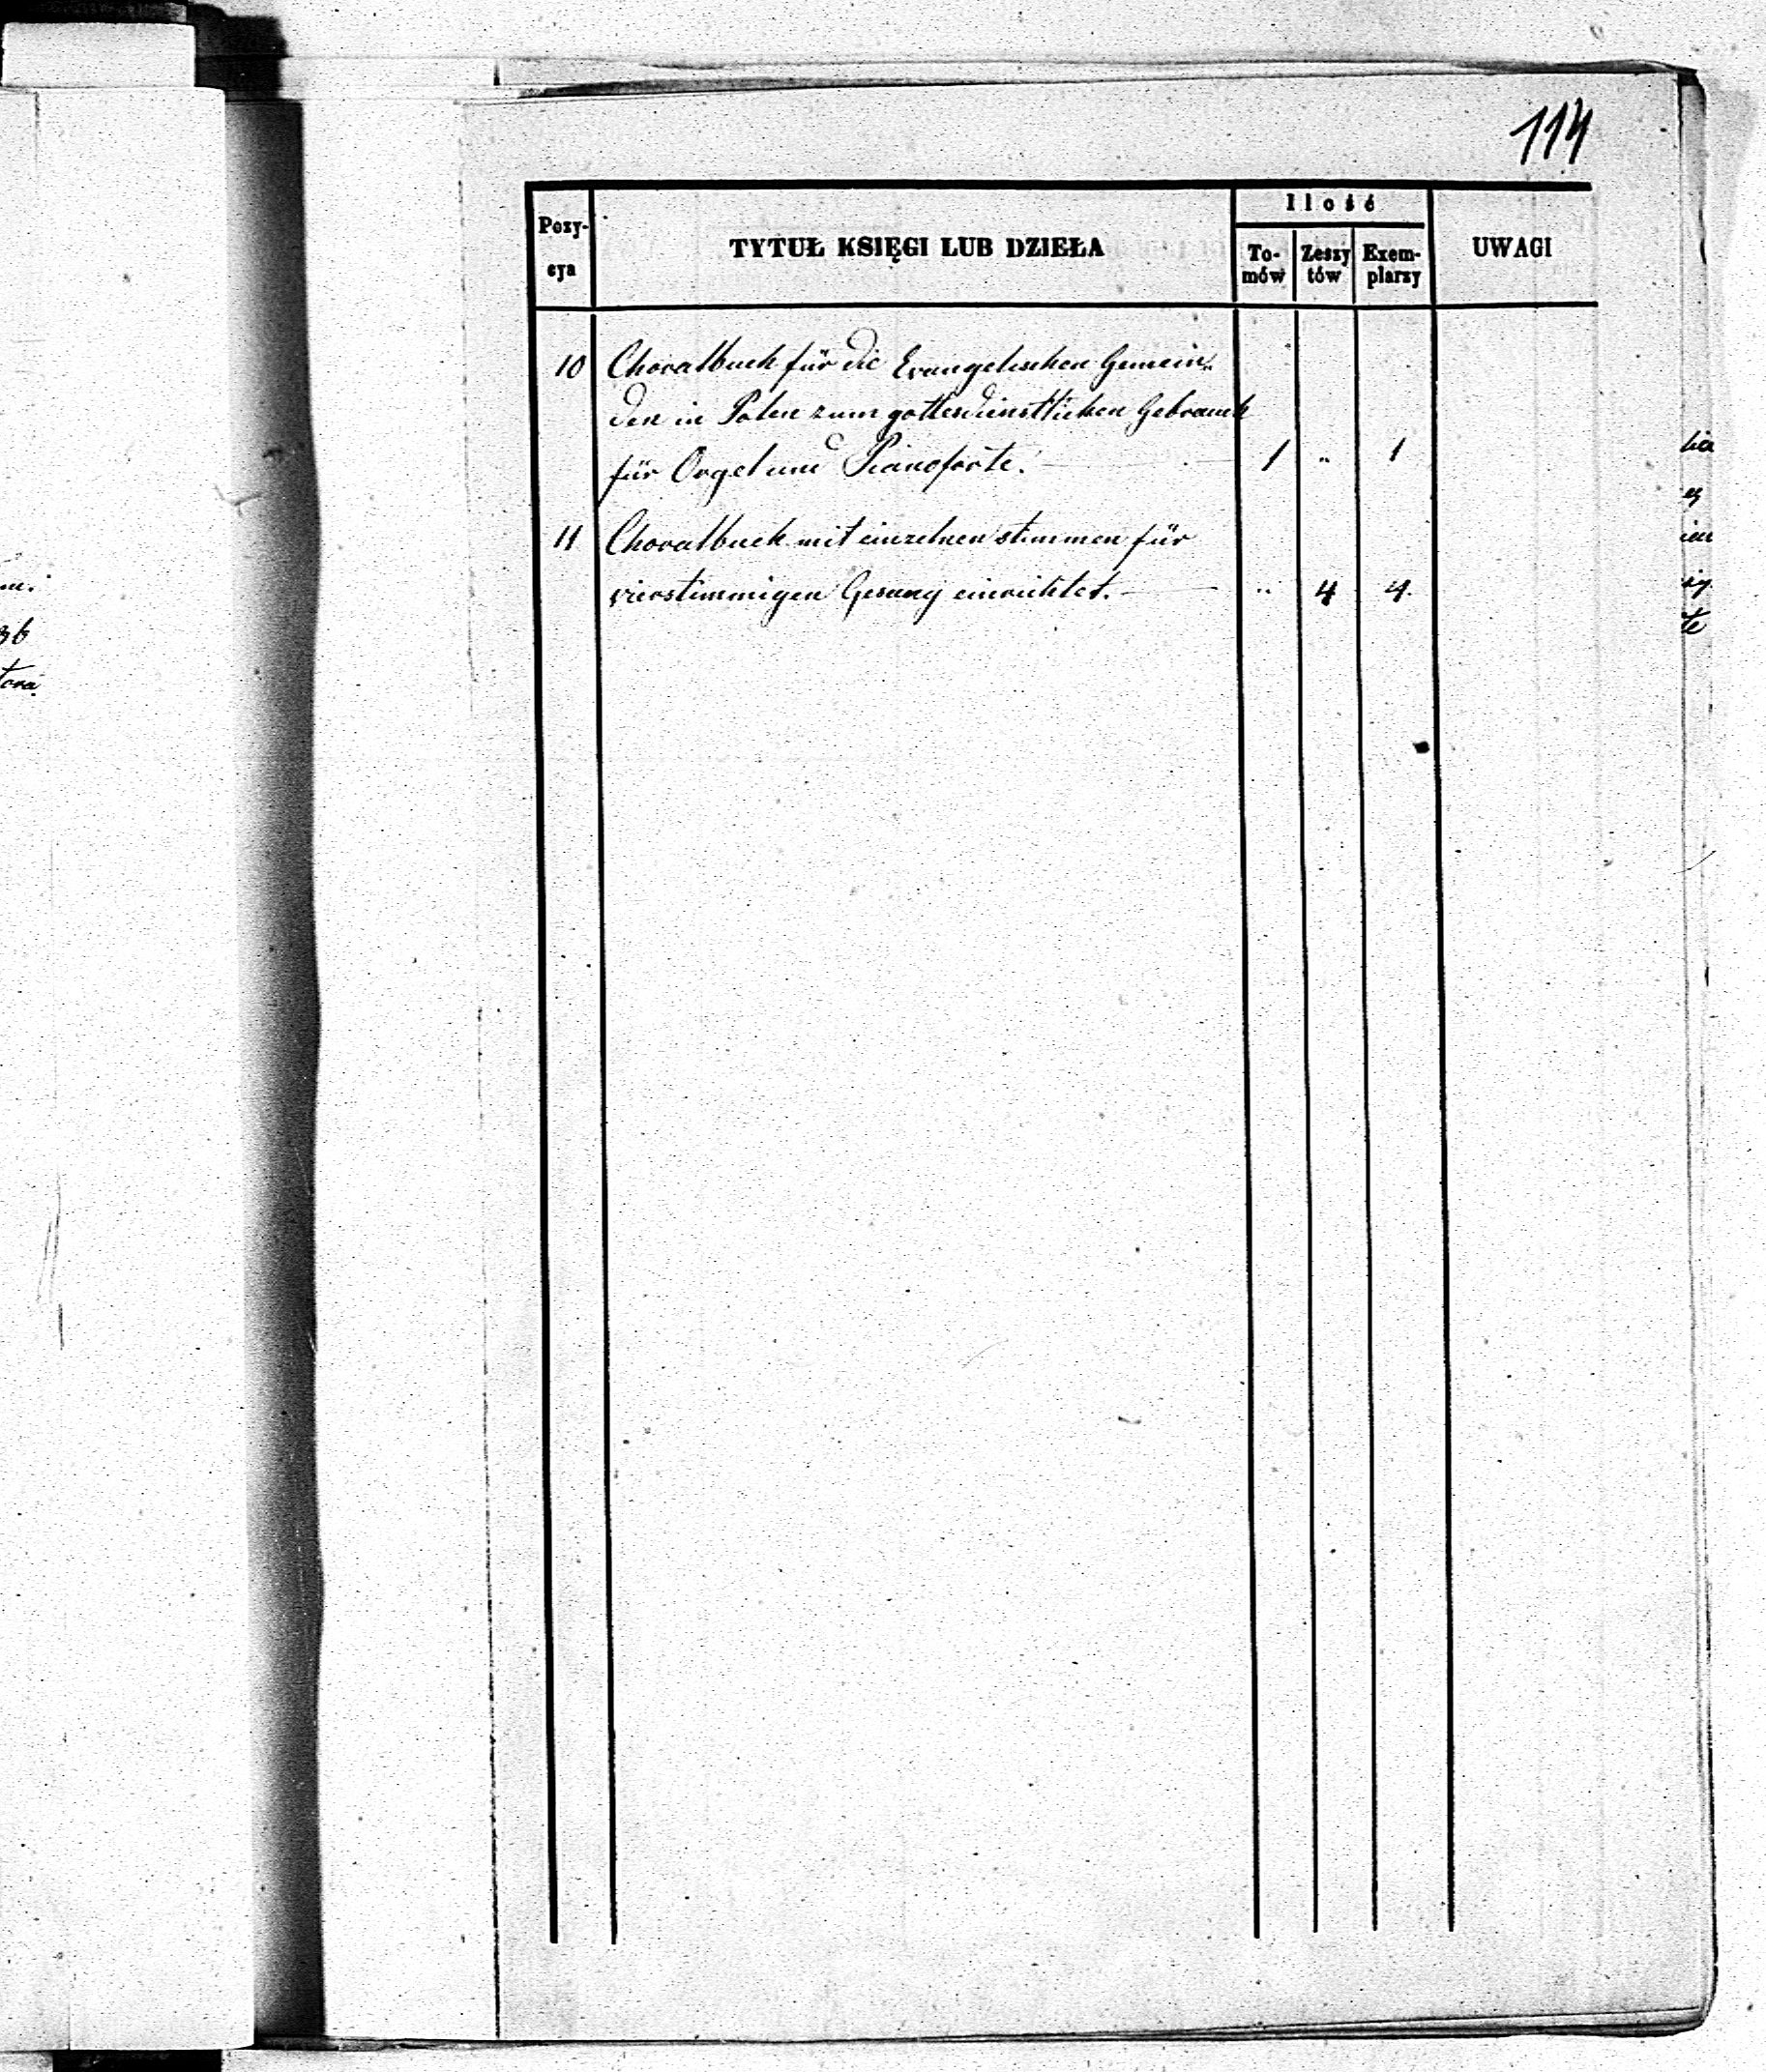 114
Pozy-
cya
TYTUŁ KSIĘGI LUB DZIEŁA
Ilość
To-
mów
Zeszy
tów
Exem-
plarzy
UWAGI
10 Choralbuch für die Evangelischen Gemein„
den in Polen zum gottesdienstlichen Gebrauch
für Orgel und Pianoforte. — 1 „ 1
11 Choralbuch mit einzelnen stimmen für
vierstimmigen Gesang einrichtet. — „ 4 4.